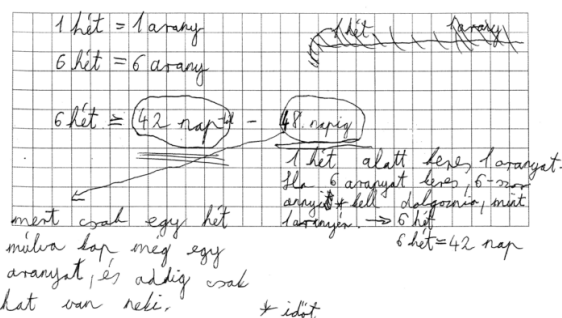 1 hét = 1 arany
6 hét = 6 arany
6 hét = 42 nap - 48. napig
1 hét alatt keres 1 aranyat.
Ha 6 aranyat keres, 6-szor
annyit * kell dolgoznia, mint
1 aranyért. → 6 hét
6 hét = 42 nap
mert csak egy hét
múlva kap meg egy
aranyat, és addig csak
hat van neki.
* időt